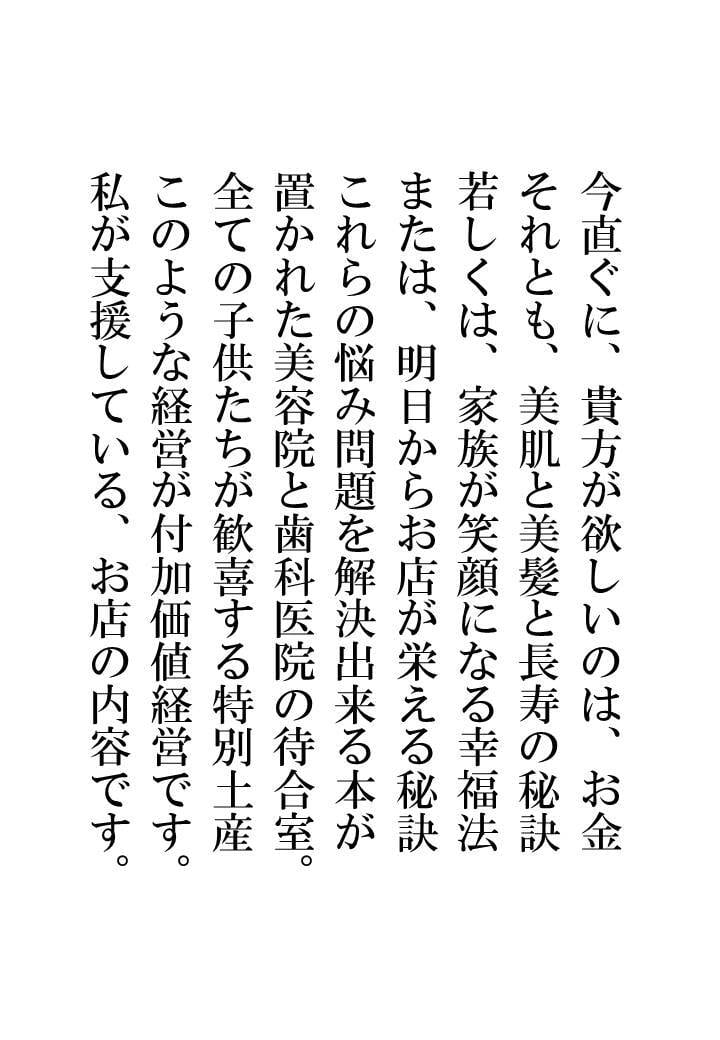 今直ぐに、貴方が欲しいのは、お金
それとも、美肌と美髪と長寿の秘訣
若しくは、家族が笑顔になる幸福法
または、明日からお店が栄える秘訣
これらの悩み問題を解決出来る本が
置かれた美容院と歯科医院の待合室。
全ての子供たちが歓喜する特別土産
このような経営が付加価値経営です。
私が支援している、お店の内容です。